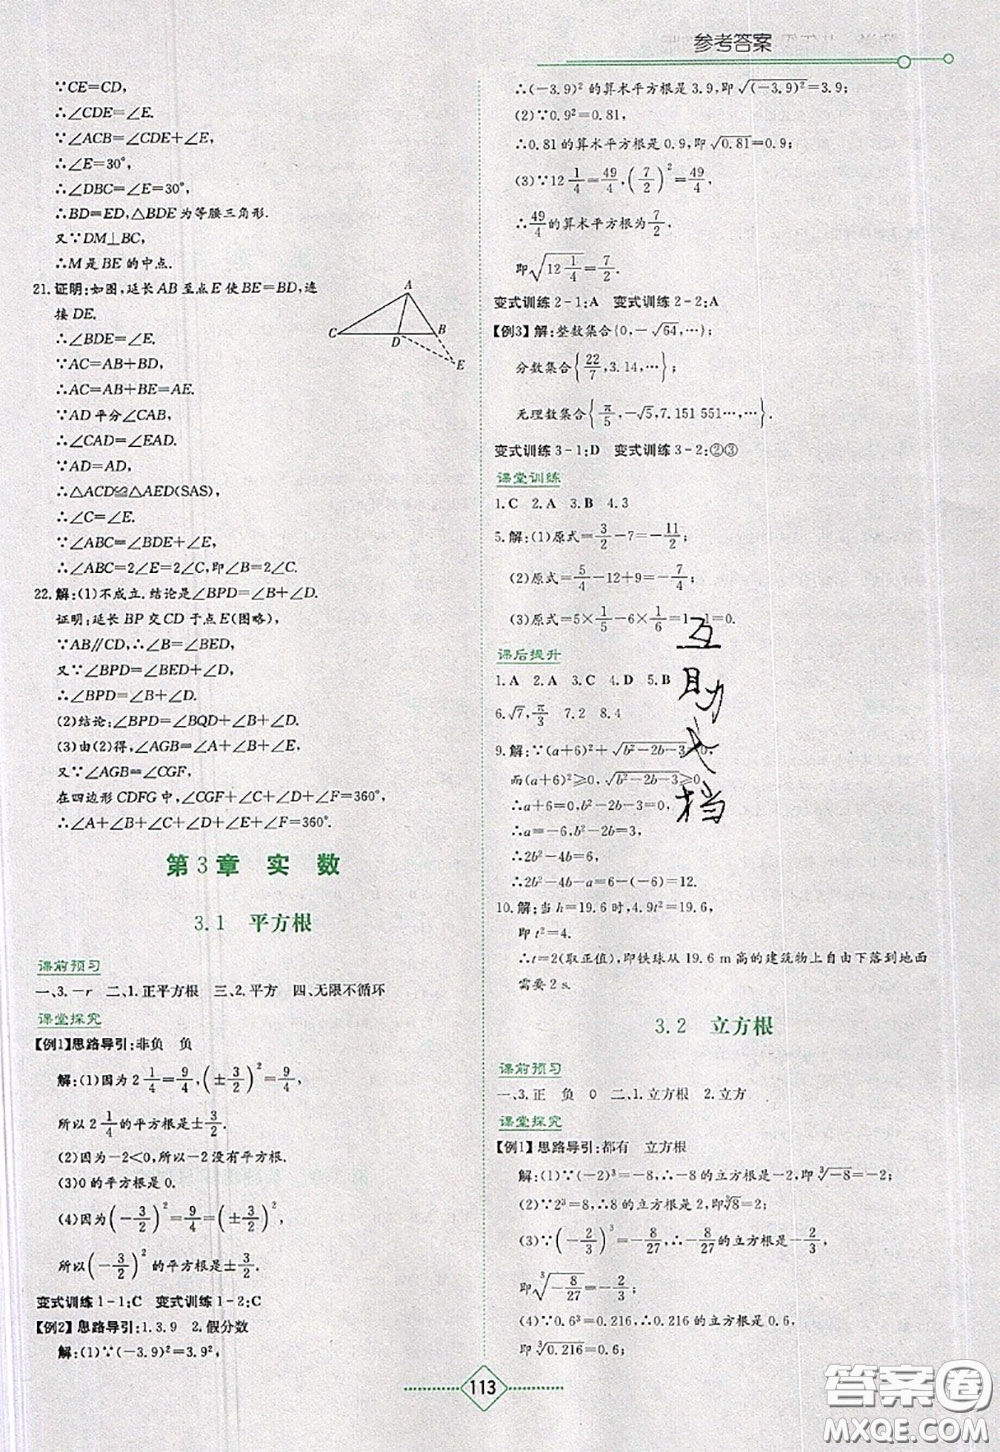 参考答案
∵CE=CD,
∴∠CDE=∠E.
∵∠ACB=∠CDE+∠E,
∴∠E=30°,
∴∠DBC=∠E=30°,
∴BD=ED,△BDE为等腰三角形.
又∵DM⊥BC,
∴M是BE的中点.
21.证明:如图,延长AB至点E使BE=BD,连
接DE.
∴∠BDE=∠E.
∵AC=AB+BD,
∴AC=AB+BE=AE.
∵AD平分∠CAB,
∴∠CAD=∠EAD.
∵AD=AD,
∴△ACD≌△AED(SAS).
∴∠C=∠E.
∵∠ABC=∠BDE+∠E,
∴∠ABC=2∠E=2∠C,即∠B=2∠C.
A
C
D
B
E
22.解:(1)不成立.结论是∠BPD=∠B+∠D.
证明:延长BP交CD于点E(图略),
∵AB∥CD,∴∠B=∠BED.
又∵∠BPD=∠BED+∠D,
∴∠BPD=∠B+∠D.
(2)结论:∠BPD=∠BQD+∠B+∠D.
(3)由(2)得,∠AGB=∠A+∠B+∠E,
又∵∠AGB=∠CGF,
在四边形CDFG中,∠CGF+∠C+∠D+∠F=360°,
∴∠A+∠B+∠C+∠D+∠E+∠F=360°.
第3章 实数
3.1 平方根
课前预习
一、3.-r 二、1.正平方根 三、2.平方 四、无限不循环
课堂探究
【例1】思路导引:非负 负
解:(1)因为2 1/4=9/4,(±3/2)²=9/4,
所以2 1/4的平方根是±3/2.
(2)因为-2<0,所以-2没有平方根.
(3)0的平方根是0.
(4)因为(-3/2)²=9/4=(±3/2)²,
所以(-3/2)²的平方根是±3/2.
变式训练1-1:C 变式训练1-2:C
【例2】思路导引:1.3.9 2.假分数
解:(1)∵(-3.9)²=3.9²,
∴(-3.9)²的算术平方根是3.9,即√(-3.9)²=3.9;
(2)∵0.9²=0.81,
∴0.81的算术平方根是0.9,即√0.81=0.9;
(3)∵12 1/4=49/4,(7/2)²=49/4,
∴49/4的算术平方根为7/2,
即√12 1/4=7/2.
变式训练2-1:A 变式训练2-2:A
【例3】解:整数集合{0,-√64,…};
分数集合{22/7,3.14,…};
无理数集合{π/5,-√5,7.151 551…,…}.
变式训练3-1:D 变式训练3-2:②③
课堂训练
1.C 2.A 3.B 4.3
5.解:(1)原式=3/2-7=-11/2;
(2)原式=5/4-12+9=-7/4;
(3)原式=5×1/5-6×1/6=1-1=0.
课后提升
1.A 2.A 3.C 4.D 5.B
6.√7,π/3 7.2 8.4
9.解:∵(a+6)²+√b²-2b-3=0,
而(a+6)²≥0,√b²-2b-3≥0,
∴a+6=0,b²-2b-3=0,
∴a=-6,b²-2b=3,
∴2b²-4b=6,
∴2b²-4b-a=6-(-6)=12.
10.解:当h=19.6时,4.9t²=19.6,
即t²=4.
∴t=2(取正值),即铁球从19.6 m高的建筑物上自由下落到地面
需要2 s.
3.2 立方根
课前预习
一、3.正 负 0 二、1.立方根 2.立方
课堂探究
【例1】思路导引:都有 立方根
解:(1)∵(-2)³=-8,∴-8的立方根是-2,即∛-8=-2;
(2)∵2³=8,∴8的立方根是2,即∛8=2;
(3)∵(-2/3)³=-8/27,∴-8/27的立方根是-2/3,
即∛-8/27=-2/3;
(4)∵0.6³=0.216,∴0.216的立方根是0.6,
即∛0.216=0.6;
113
互
助
文
档
答案圈
MXQE.COM